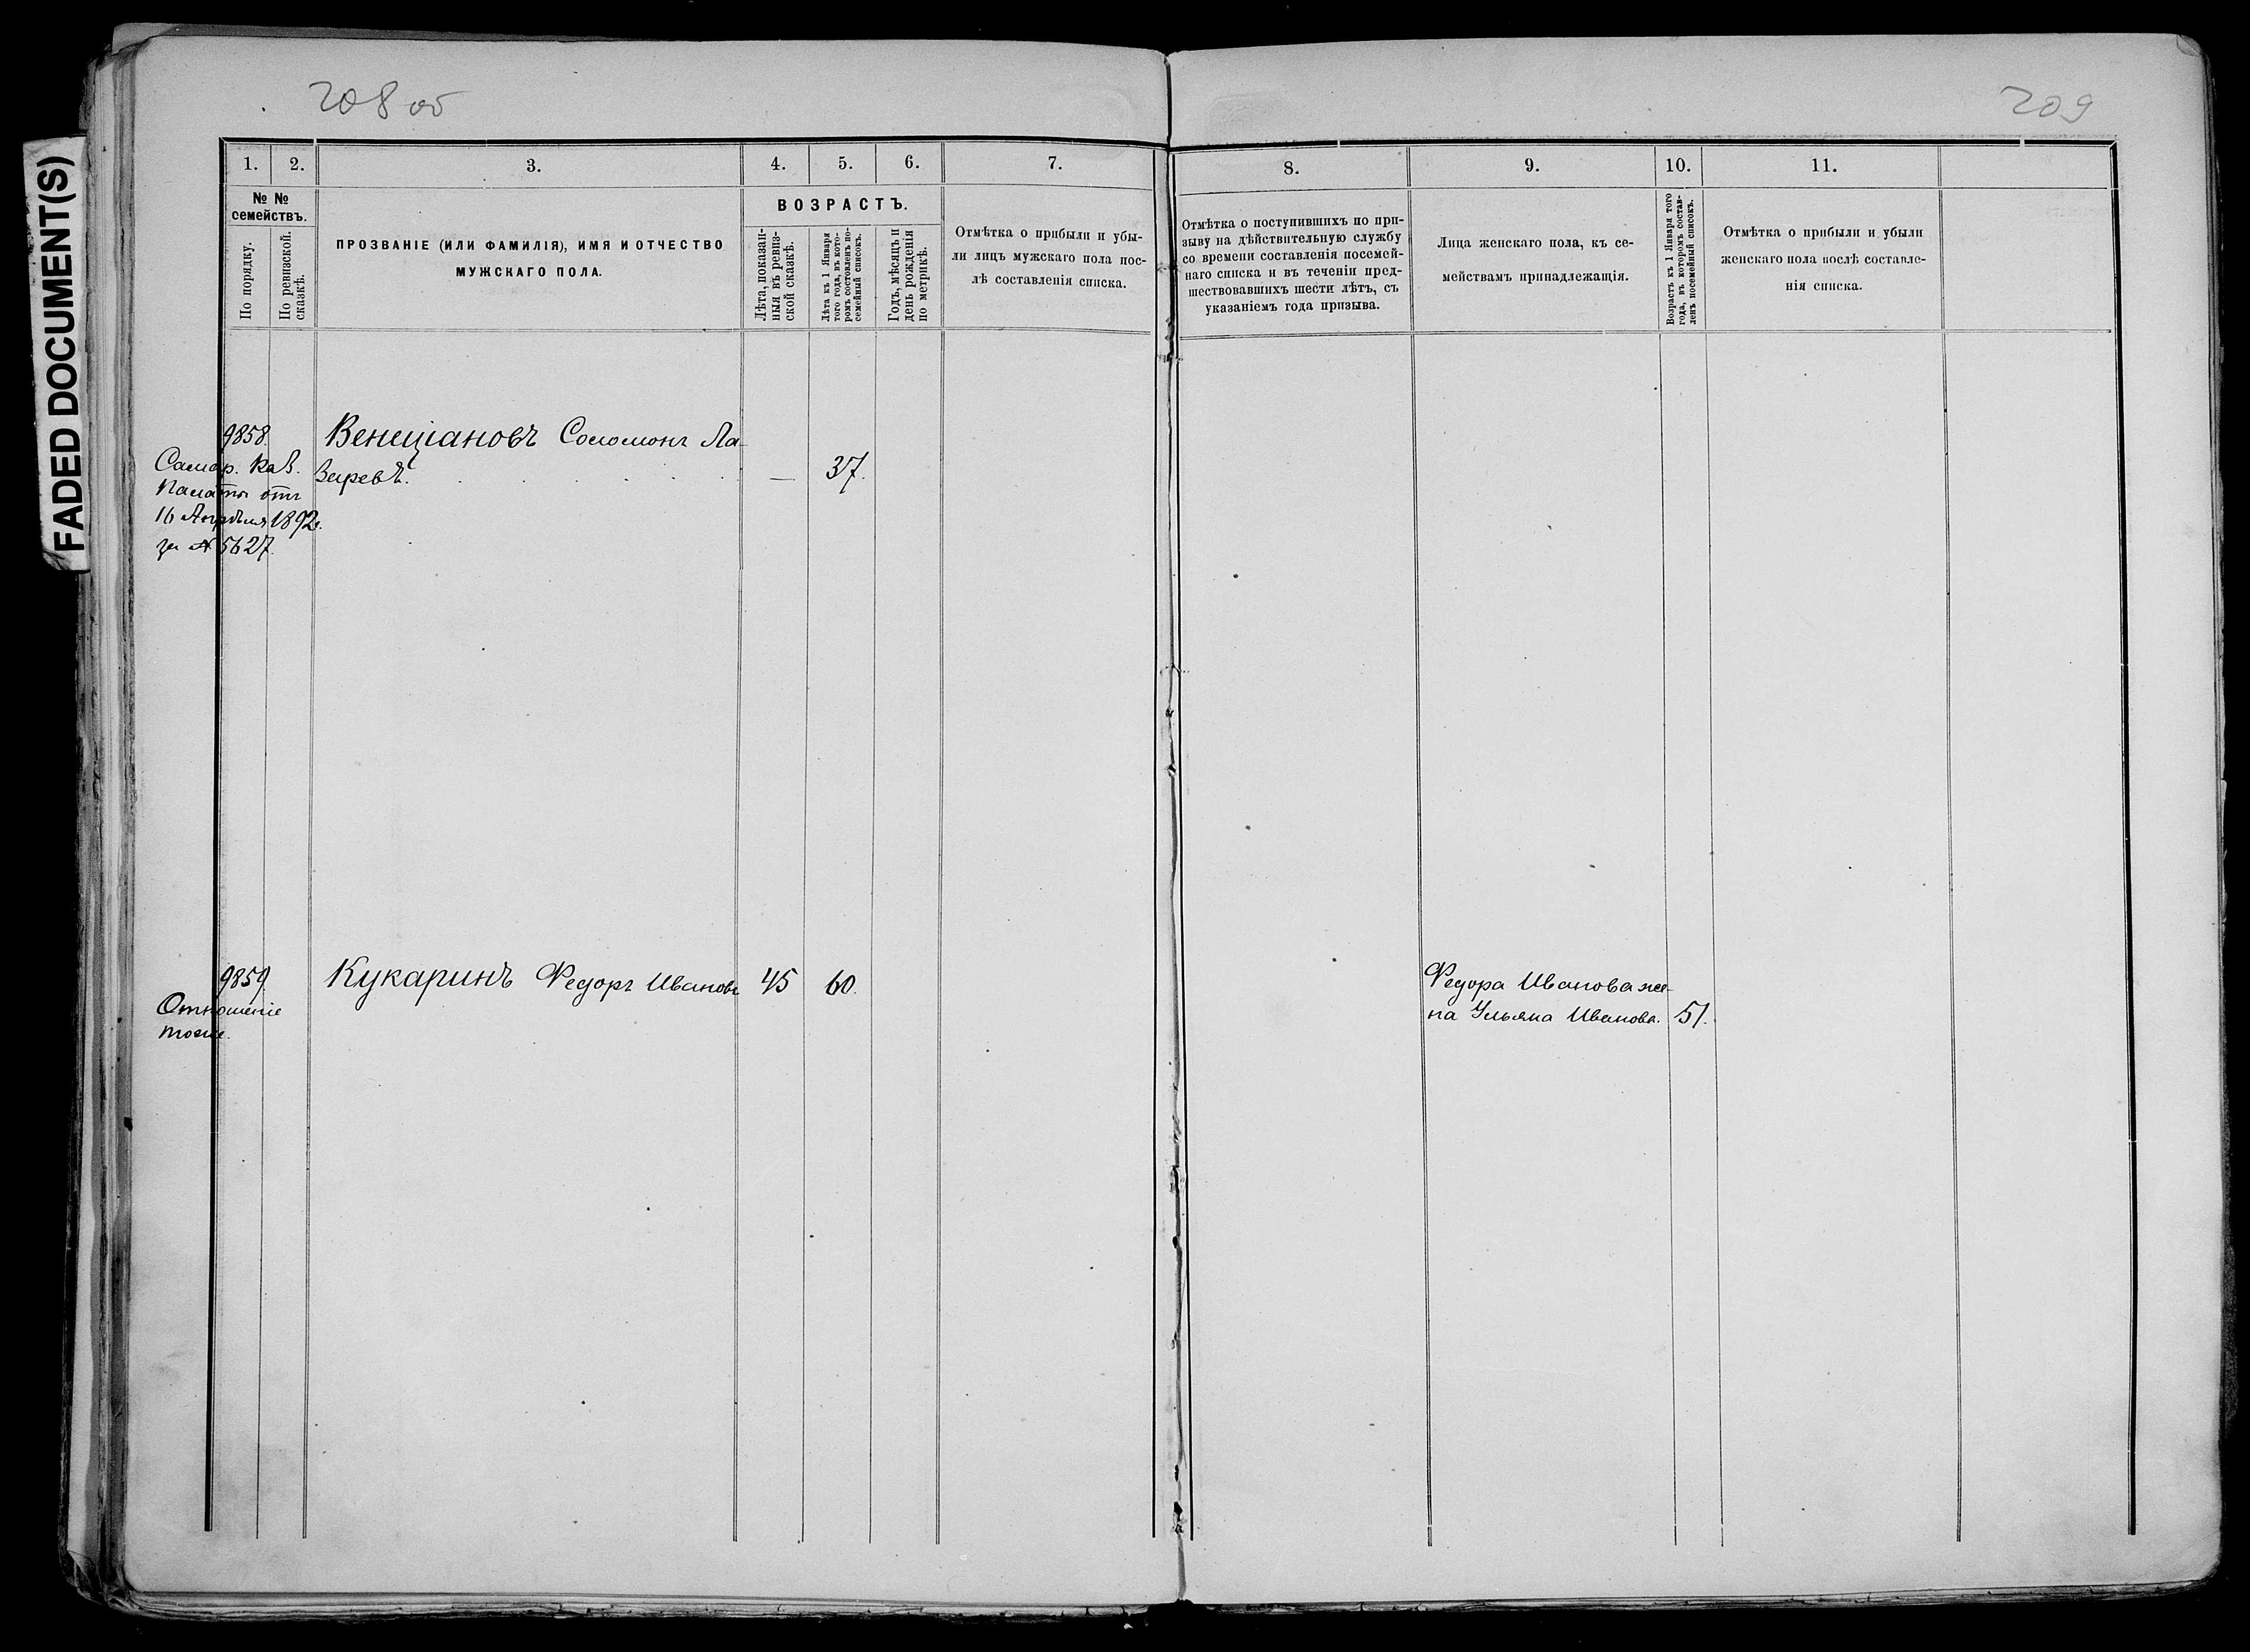 FADED DOCUMENT(S)
208 об
209
1.
2.
3.
4.
5.
6.
7.
8.
9.
10.
11.
№ №
семействъ.
По порядку.
По ревизской.
сказкѣ.
ПРОЗВАНІЕ (ИЛИ ФАМИЛІЯ), ИМЯ И ОТЧЕСТВО
МУЖСКАГО ПОЛА.
ВОЗРАСТЪ.
Лѣта, показан-
ныя въ ревиз-
ской сказкѣ.
Лѣта къ 1 Января
того года, въ кото-
ромъ составленъ по-
семейный списокъ.
Годъ, мѣсяцъ и
день рожденія
по метрикѣ.
Отмѣтка о прибыли и убы-
ли лицъ мужскаго пола пос-
лѣ составленія списка.
Отмѣтка о поступившихъ по при-
зыву на дѣйствительную службу
со времени составленія посемей-
наго списка и въ теченіи пред-
шествовавшихъ шести лѣтъ, съ
указаніемъ года призыва.
Лица женскаго пола, къ се-
мействамъ принадлежащія.
Возрастъ къ 1 Января того
года, въ которомъ состав-
ленъ посемейный списокъ.
Отмѣтка о прибыли и убыли
женскаго пола послѣ составле-
нія списка.
9858.
Самар. Каз.
Палаты отъ
16 Апрѣля 1892 г.
за № 5627.
Венециановъ Соломонъ Ла-
заревъ. — 37.
9859.
Отношеніе
тоже.
Кукаринъ Федоръ Ивановъ 45 60.
Федора Иванова же-
на Ульяна Иванова. 51.